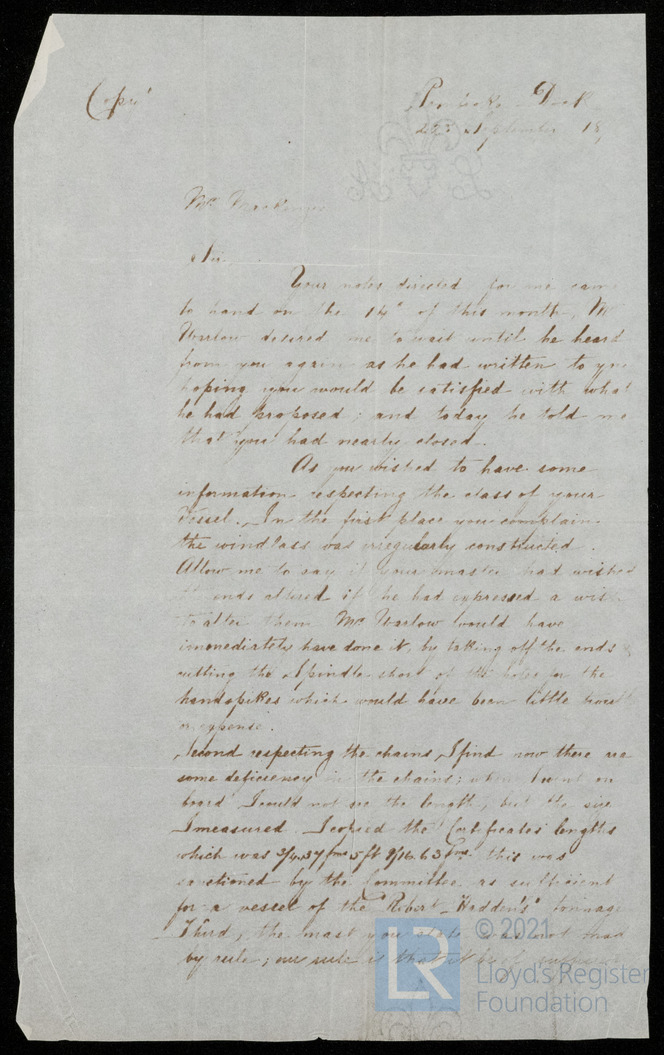 Copy
Pembroke Dock
September 18
Mr Mackenzie
Sir.
Your notes directed for me came
to hand on the 14th of this month, Mr
Warlow desired me to wait until he heard
from you again as he had written to you
hoping you would be satisfied with what
he had proposed; and today he told me
that you had nearly closed.
As you wished to have some
information respecting the class of your
Vessel. In the first place you complain
the windlass was irregularly constructed.
Allow me to say if your master had wished
ends altered if he had expressed a wish
to alter them Mr Warlow would have
immediately have done it, by taking off the ends &
cutting the Spindle short of the holes for the
handspikes which would have been little trouble
or expense.
Second respecting the chains, I find now there are
some deficiency in the chains; when I went on
board I could not see the length, but the size
I measured. I copied the Certificates lengths
which was 3/4. 37 fms 5ft 9/16. 63 fms this was
sanctioned by the Committee as sufficient
for a vessel of the "Robert Hadden's" tonnage
Third, the mast you state was not made
by rule; our rule is that it be of sufficient
© 2021
LR
Lloyd's Register
Foundation